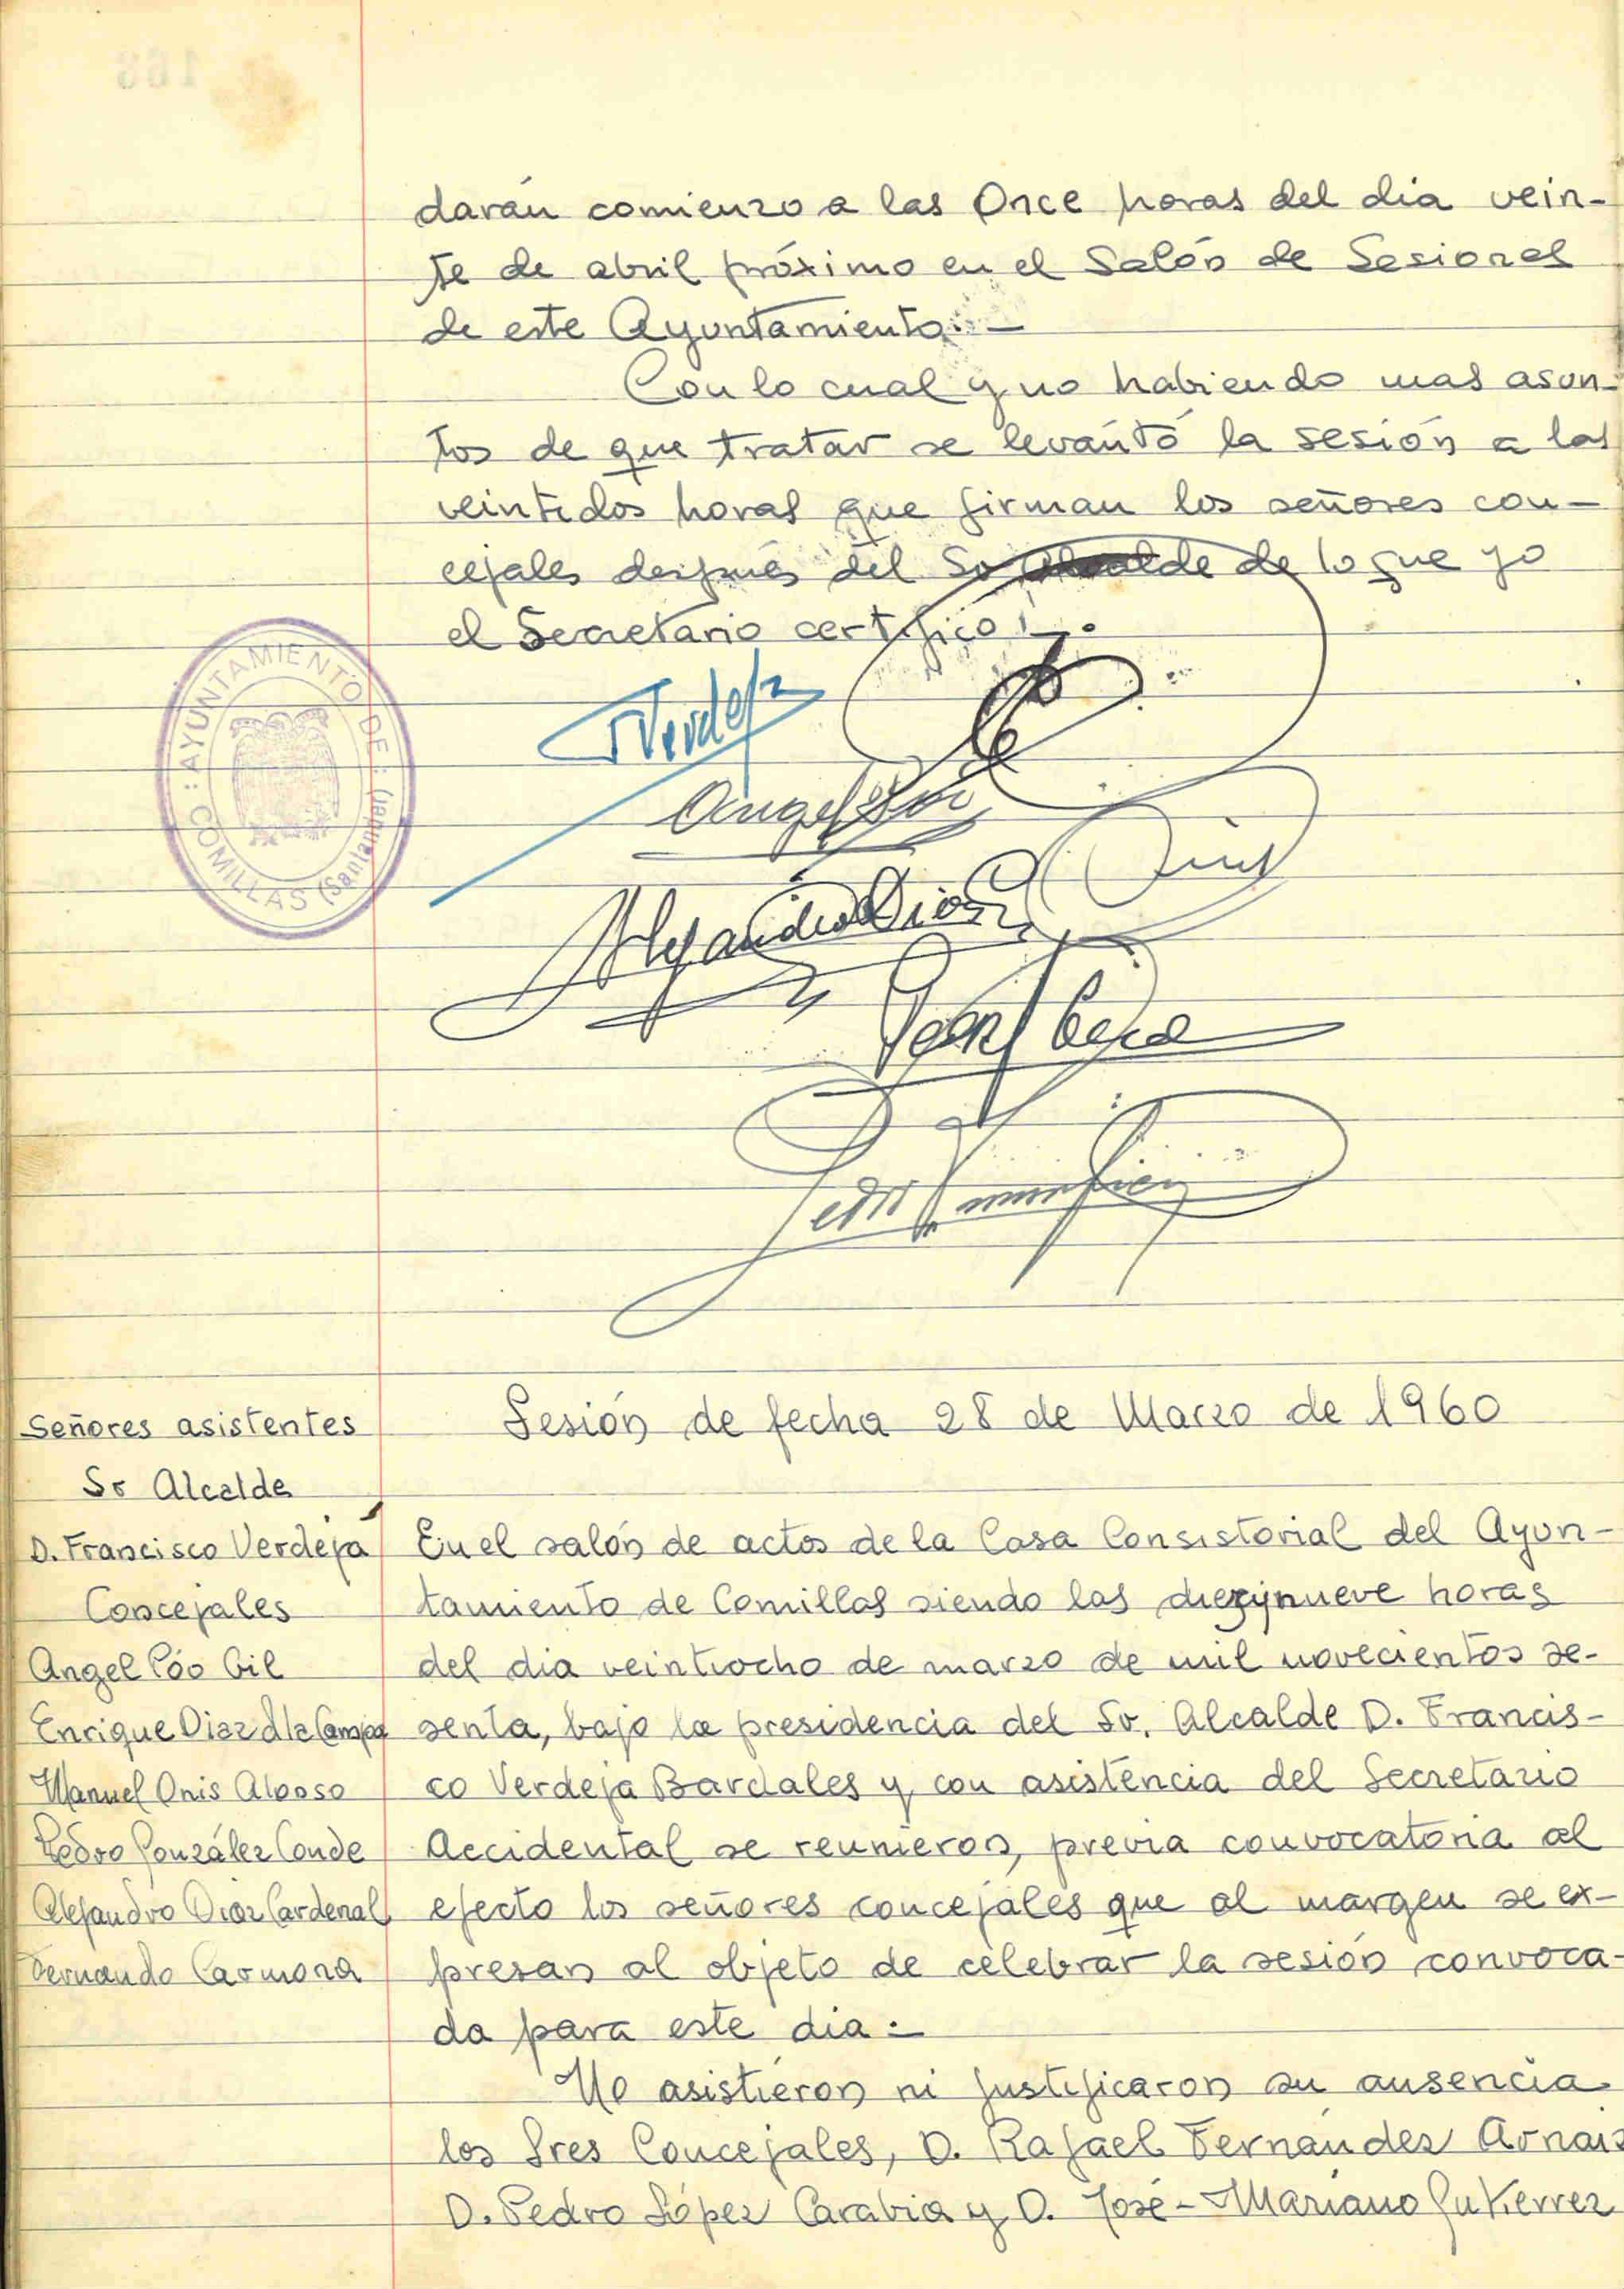 darán comienzo a las Once horas del dia vein-
te de abril próximo en el Salón de Sesiones
de este Ayuntamiento.-
Con lo cual y no habiendo mas asun-
tos de que tratar se levantó la sesión a las
veintidos horas que firman los señores con-
cejales después del Sr Alcalde de lo que yo
el Secretario certifico:-
AYUNTAMIENTO DE: COMILLAS (Santander)
Verdeja
Angel Póo
Alejandro Diaz
Sesión de fecha 28 de Marzo de 1960
Señores asistentes
Sr Alcalde
D. Francisco Verdeja
Concejales
Angel Póo Gil
Enrique Diaz d la Campa
Manuel Onis Alonso
Pedro González Conde
Alejandro Diaz Cardenal
Fernando Carmona
En el salón de actos de la Casa Consistorial del Ayun-
tamiento de Comillas siendo las diezynueve horas
del dia veintiocho de marzo de mil novecientos se-
senta, bajo la presidencia del Sr. Alcalde D. Francis-
co Verdeja Bardales y con asistencia del Secretario
Accidental se reunieron, previa convocatoria al
efecto los señores concejales que al margen se ex-
presan al objeto de celebrar la sesión convoca-
da para este dia:-
No asistieron ni justificaron su ausencia
los Sres Concejales, D. Rafael Fernández Arnaiz
D. Pedro López Carabia y D. José-Mariano Gutierrez